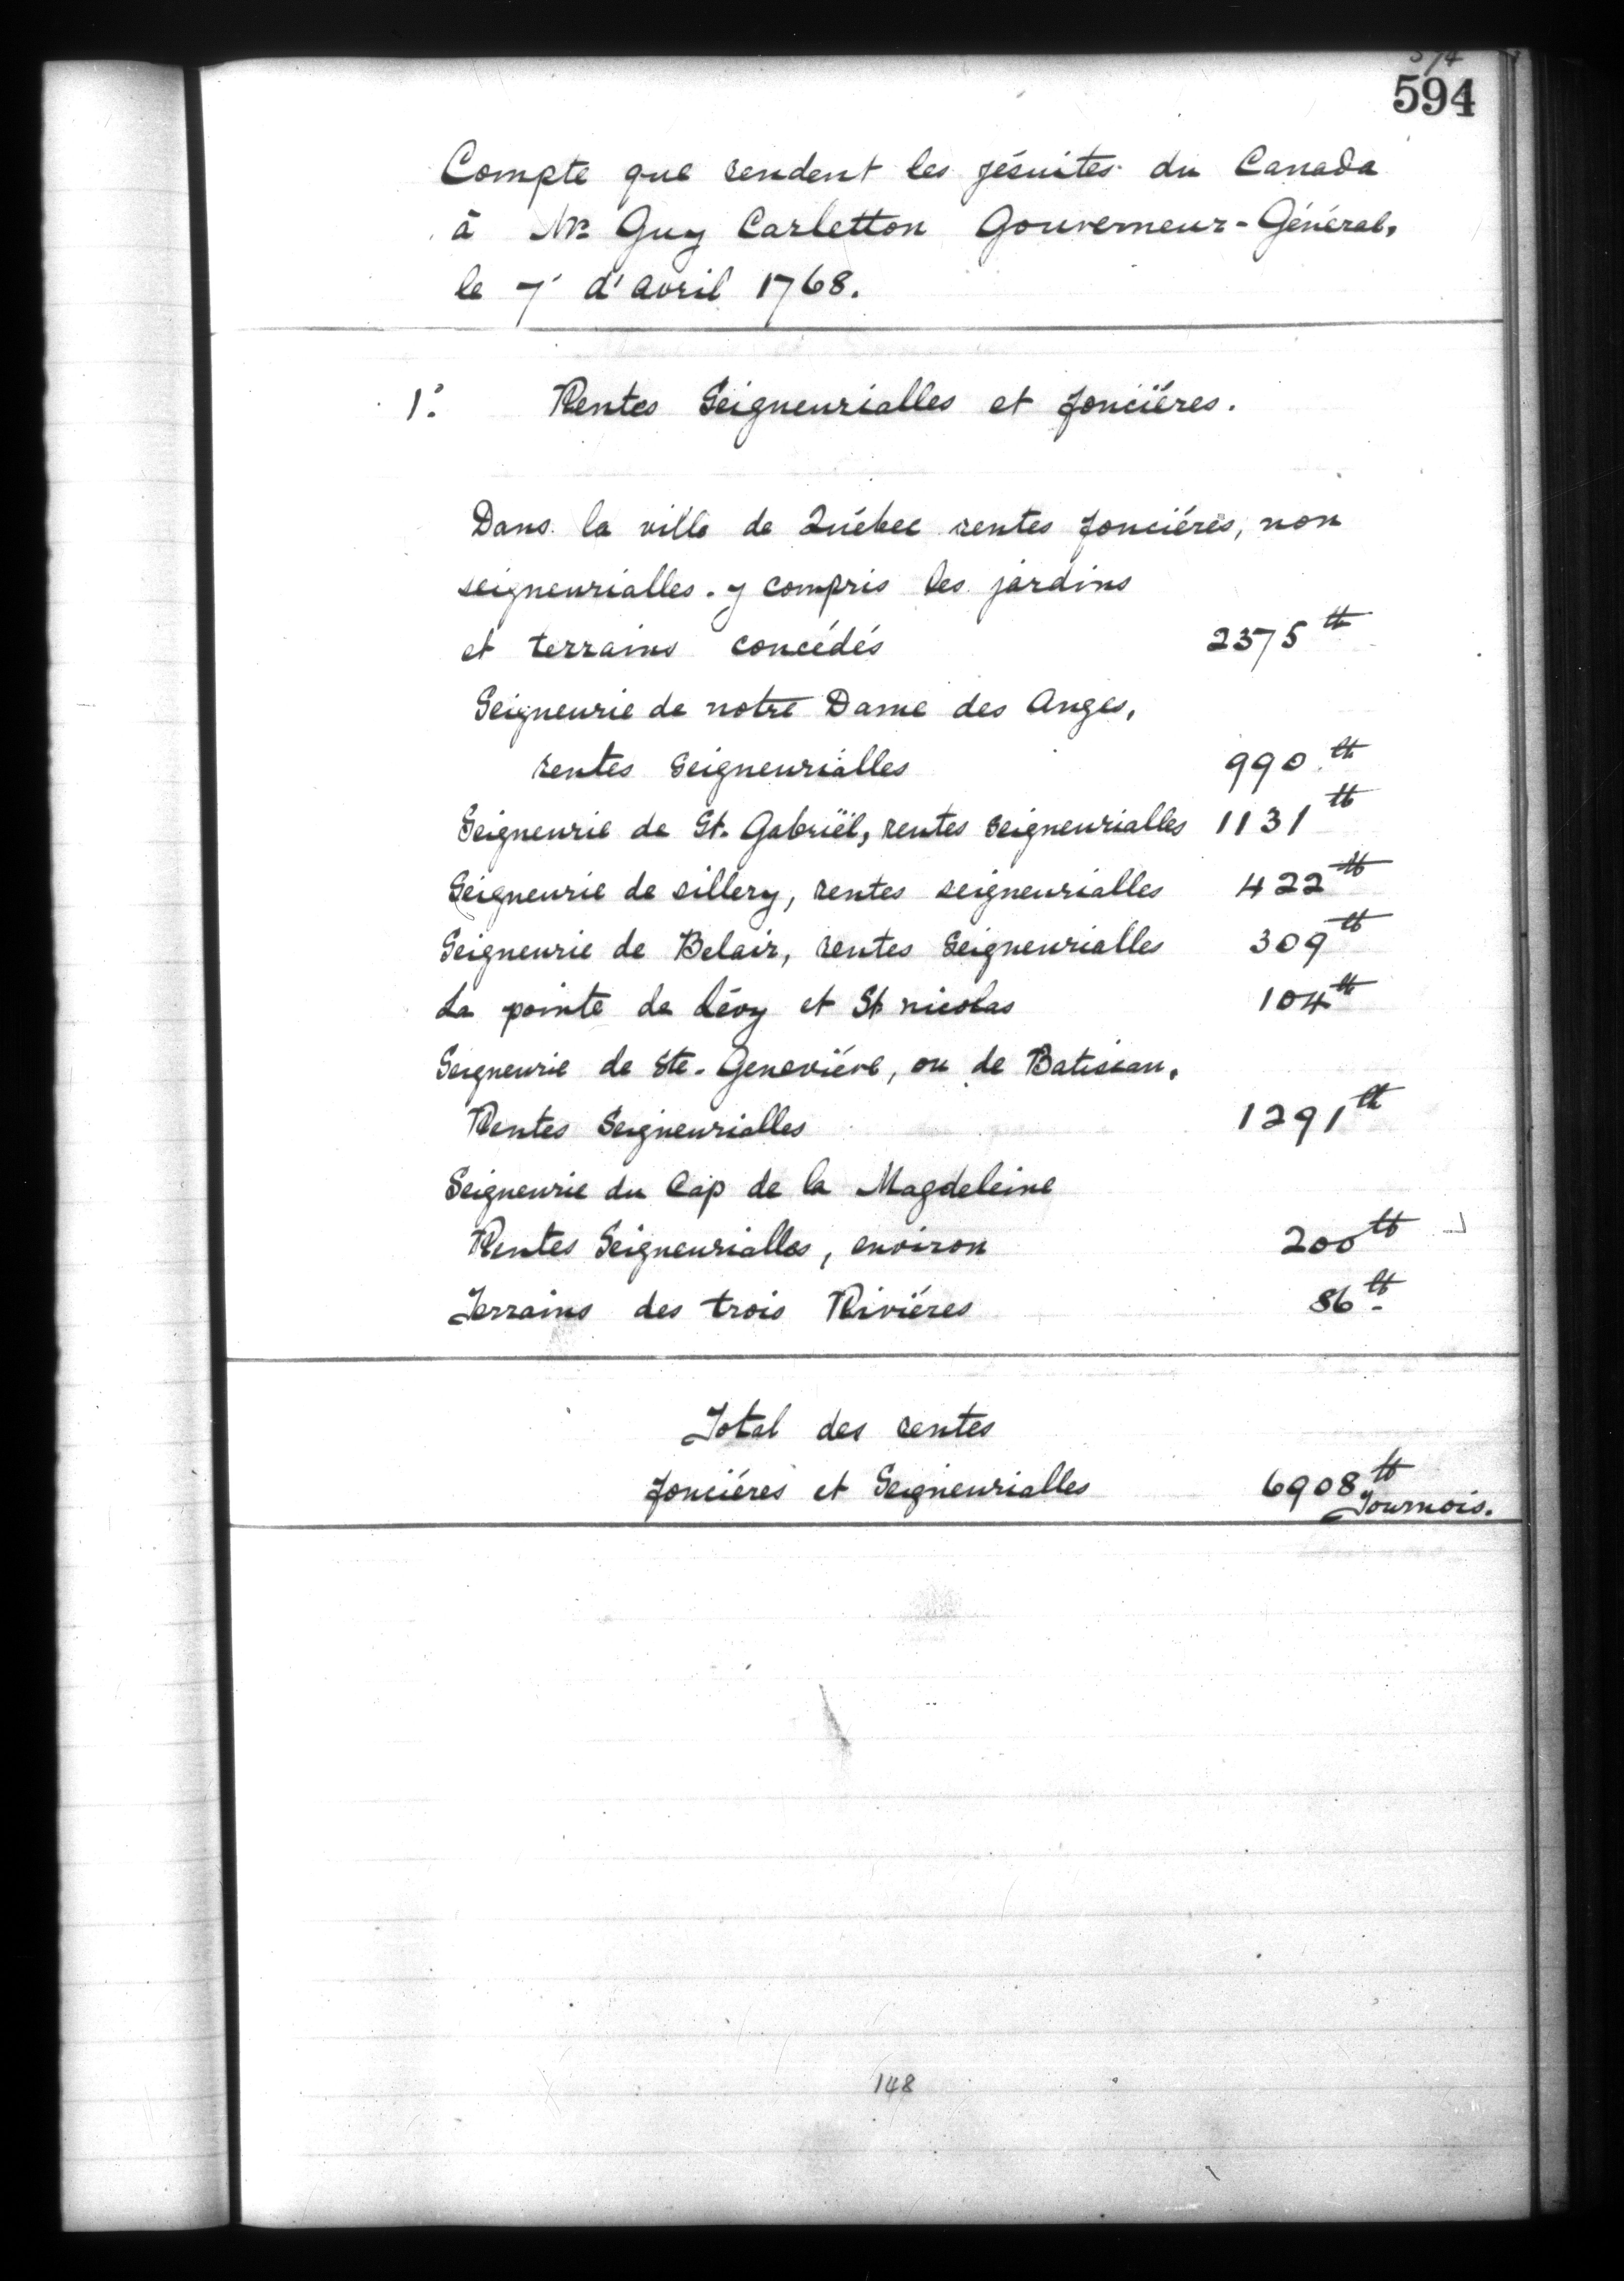 594
Compte que rendent les jésuites du Canada
à Mr Guy Carletton Gouverneur-Général,
le 7 d'avril 1768.
1º Rentes Seigneurialles et foncières.
Dans la ville de Québec rentes foncières, non
seigneurialles. y compris les jardins
et terrains concédés 2375 tt
Seigneurie de notre Dame des Anges,
rentes Seigneurialles 990 tt
Seigneurie de St. Gabriël, rentes seigneurialles 1131 tt
Seigneurie de sillery, rentes seigneurialles 422 tt
Seigneurie de Belair, rentes Seigneurialles 309 tt
La pointe de Lévy et St nicolas 104 tt
Seigneurie de Ste. Geneviève, ou de Batiscan,
Rentes Seigneurialles 1291 tt
Seigneurie du Cap de la Magdeleine
Rentes Seigneurialles, environ 200 tt
Terrains des trois Rivières 86 tt
Total des rentes
foncières et Seigneurialles 6908 tt
Tournois.
148